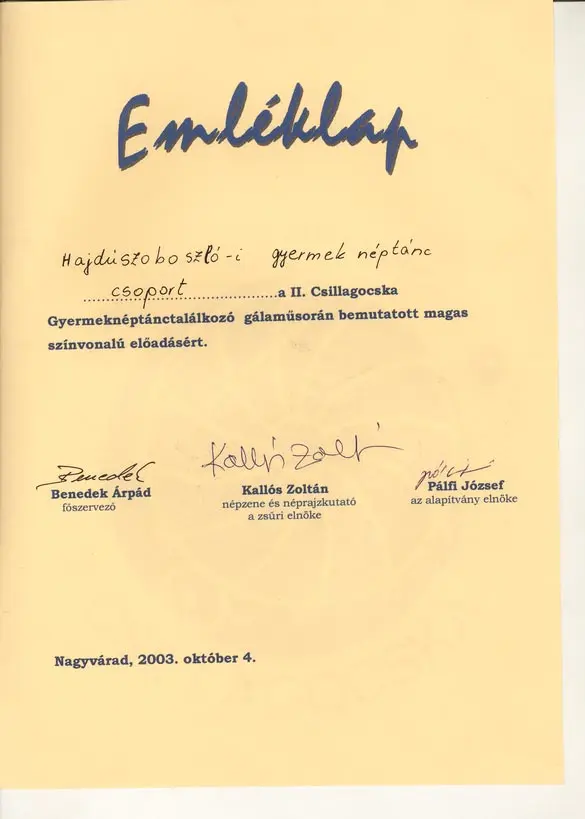 Emléklap
Hajdúszoboszló-i gyermek néptánc
csoport a II. Csillagocska
Gyermeknéptánctalálkozó gálaműsorán bemutatott magas
színvonalú előadásért.
Benedek
Kallós Zoltán
Pálfi
Benedek Árpád
főszervező
Kallós Zoltán
népzene és néprajzkutató
a zsűri elnöke
Pálfi József
az alapítvány elnöke
Nagyvárad, 2003. október 4.